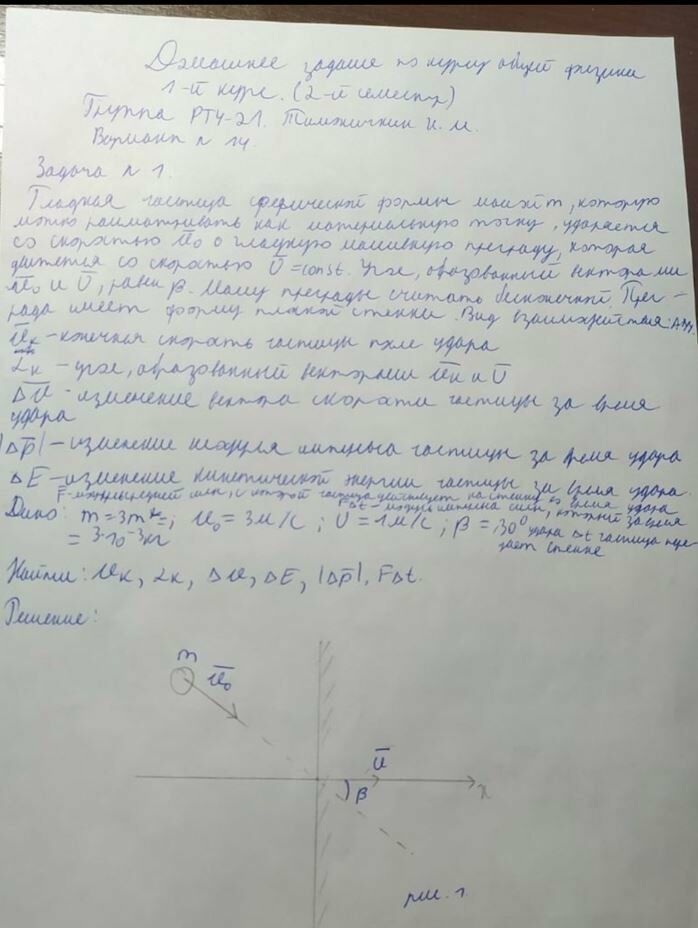 Домашнее задание по курсу общей физики
1-й курс. (2-й семестр)
Группа РТ4-21.
Вариант n 14.
Задача n 1.
Гладкая частица сферической формы массой m, которую
можно рассматривать как материальную точку, ударяется
со скоростью ū₀ о гладкую массивную преграду, которая
движется со скоростью Ū = const. Угол, образованный векторами
ū₀ и Ū, равен β. Массу преграды считать бесконечной. Прег-
рада имеет форму плоской стенки. Вид взаимодействия:
ūк - конечная скорость частицы после удара
αк - угол, образованный векторами ūк и Ū
Δū - изменение вектора скорости частицы за время
удара
|Δp̄| - изменение модуля импульса частицы за время удара
ΔE - изменение кинетической энергии частицы за время удара.
F - модуль средней силы, с которой частица действует на стенку во время удара
FΔt - модуль импульса силы, который за время
Дано: m = 3 ; u₀ = 3 м/с ; U = 1 м/с ; β = 30⁰ удара Δt частица пере-
= 3·10⁻³ кг дает стенке
Найти: uк, αк, Δu, ΔE, |Δp̄|, FΔt.
Решение:
m
ū₀
Ū
β
x
рис. 1.